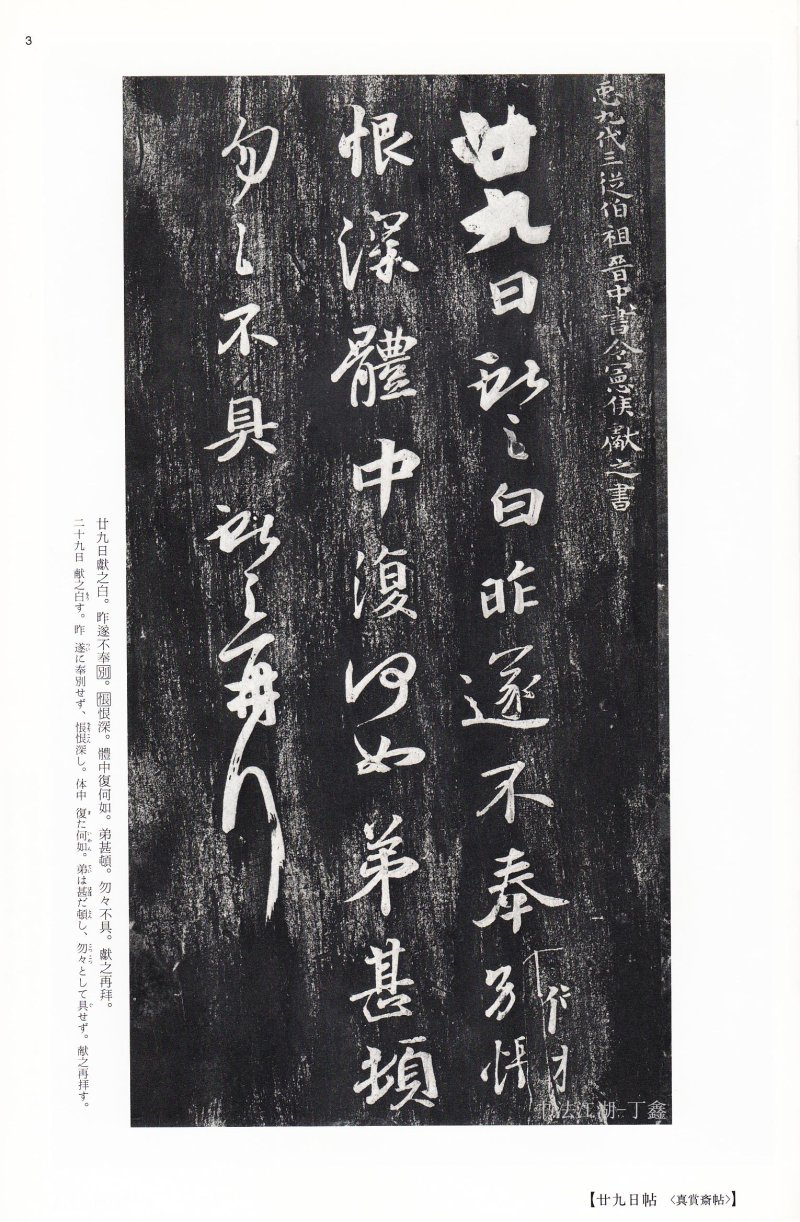 3
臣九代三從伯祖晉中書令憲侯獻之書
廿九日獻之白昨遂不奉別悵
恨深體中復何如弟甚頓
勿々不具獻之再拜
廿九日獻之白。昨遂不奉別。悵恨深。體中復何如。弟甚頓。勿々不具。獻之再拜。
二十九日 献之白す。昨 遂に奉別せず、悵恨深し。体中 復た何如。弟は甚だ頓し、勿々として具せず。献之再拝す。
书法江湖-丁鑫
【廿九日帖 〈真賞斎帖〉】